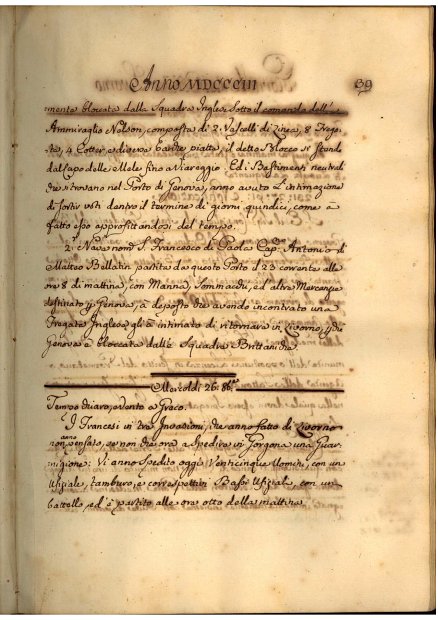 Anno MDCCCIII 39
mente bloccata dalla Squadra Inglese, sotto il comando dell'
Ammiraglio Nelson, composta di 2. Vascelli di Linea, 8 Frega-
te, 4 Cotter e diverse Barche piatte, il detto Blocco si stende
dal Capo delle Mele fino a Viareggio. Ed i Bastimenti neutrali
che si trovano nel Porto di Genova, anno avuto l'intimazione
di sortir dentro il termine di giorni quindici, come à
fatto esso approfittandosi del tempo.
2.ª Nave nom.ª S. Francesco di Paola Cap.º Antonio di
Matteo Ballatin partita da questo Porto il 23 corrente alle
ore 8 di mattina, con Manna, Sommacchi, ed altre Mercanzie
destinato p Genova, à deposto che avendo incontrato una
Fregata Inglese gli à intimato di ritornare in Livorno,
Genova è bloccata dalle Squadra Brittaniche.
Mercoldì 26: 8b.re
Tempo chiaro, e Vento a Greco.
I Francesi in tra Invasioni, che anno fatto di Livorno
non anno pensato, se non che ora a Spedire in Gorgona una Guar-
nigione: Vi anno Spedito oggi Venticinque Uomini, con un
Ufiziale, tamburo, e correspettivi Bassi Ufiziali, con un
battello, ed è partito alle ore otto della mattina